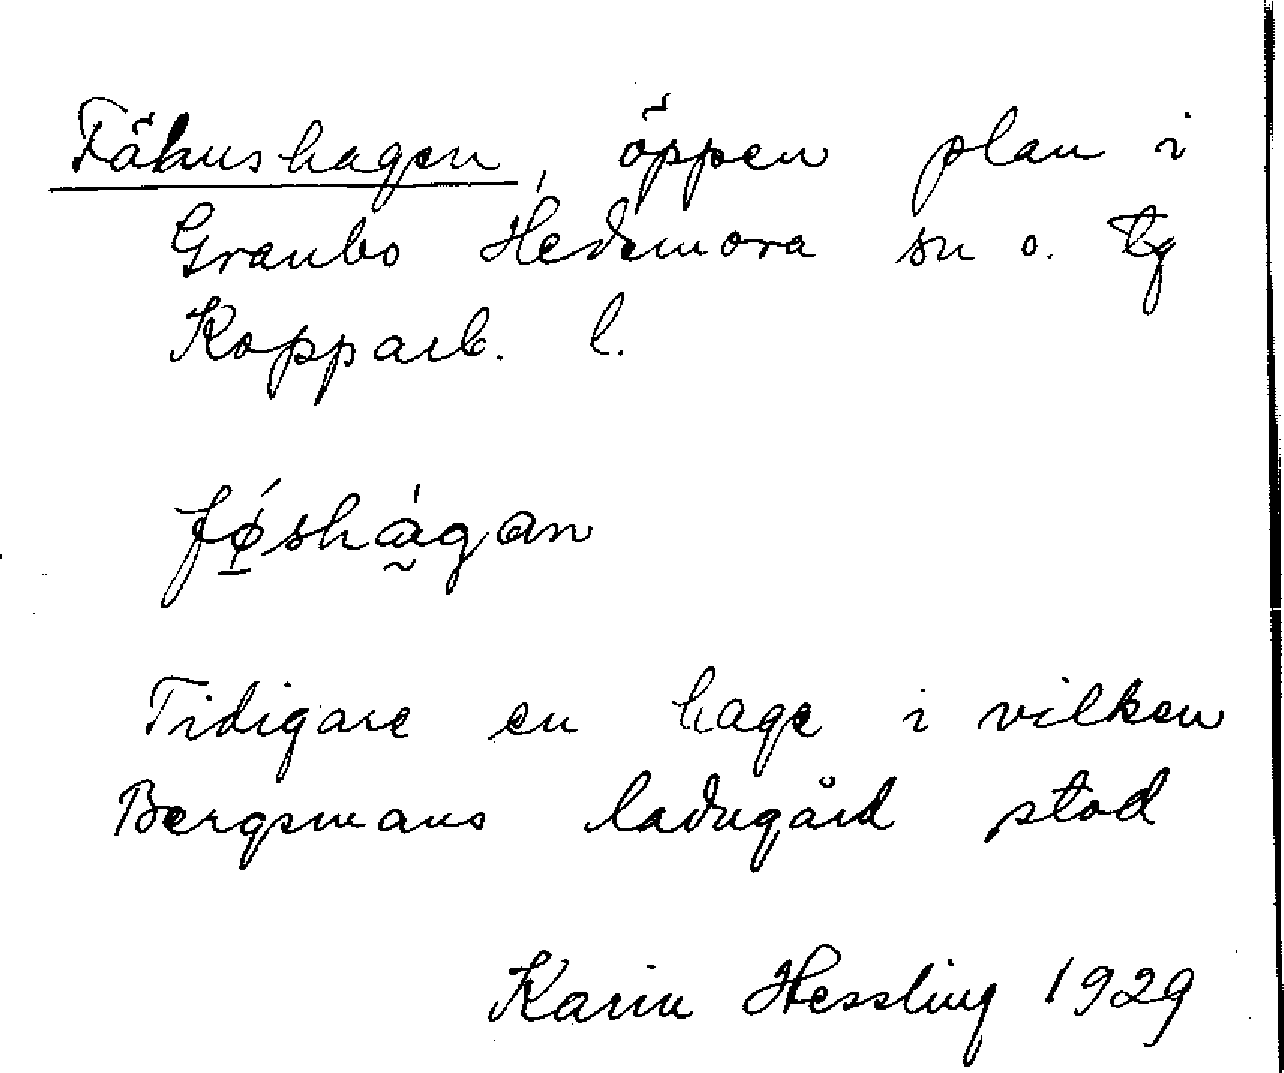 Fähushagen, öppen plan i
Granbo Hedemora sn o. tg
Kopparb. l.
fǿ̱shà̰gan
Tidigare en hage i vilken
Bergsmans ladugård stod
Karin Hessling 1929